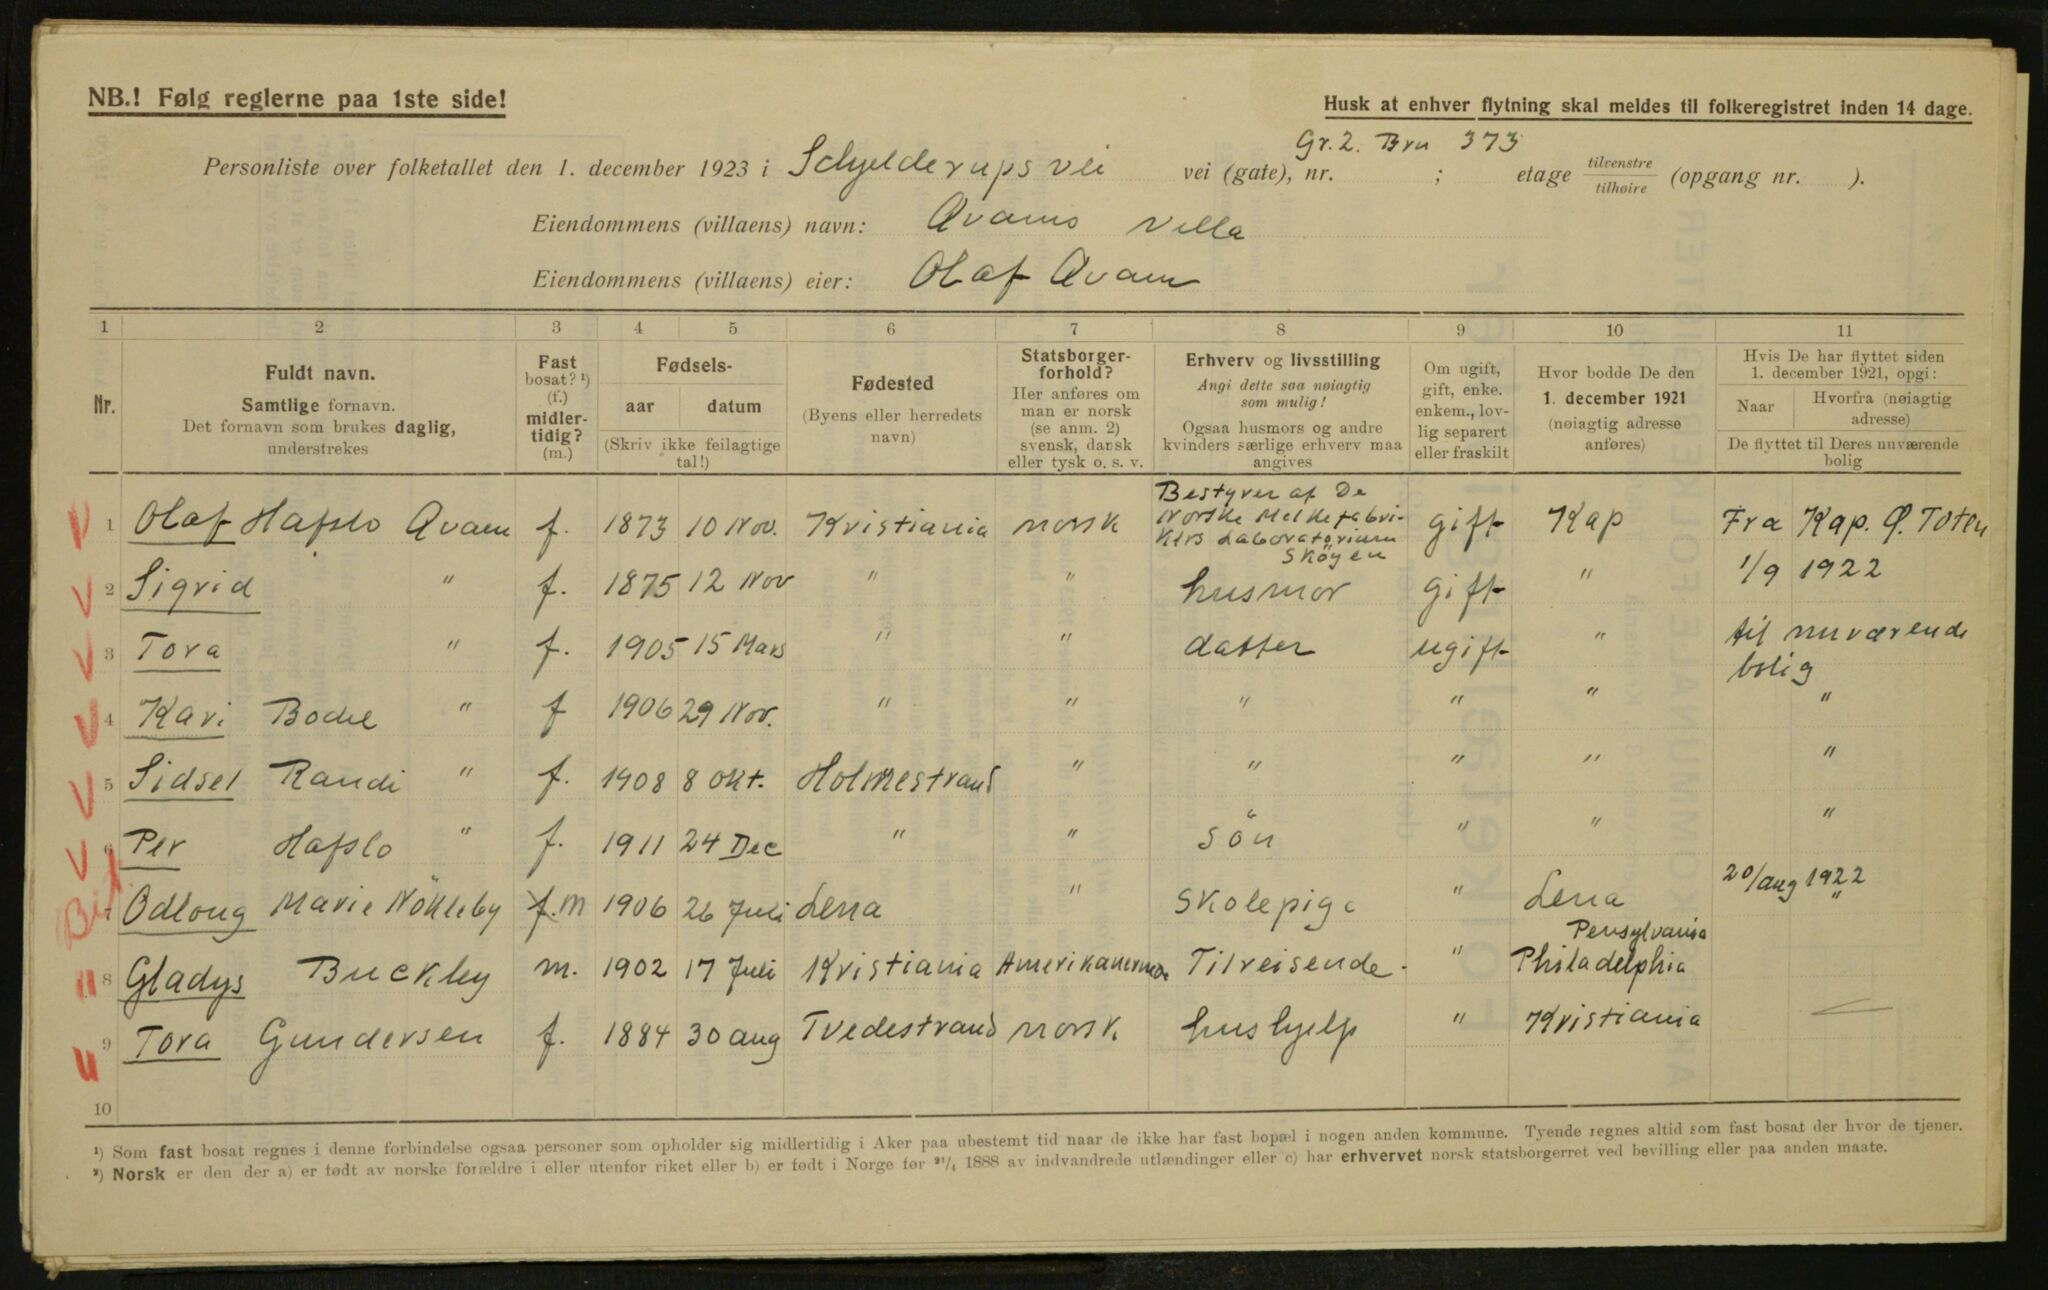 NB.! Følg reglerne paa 1ste side!
Husk at enhver flytning skal meldes til folkeregistret inden 14 dage.
Gr. 2. Bru 373
Personliste over folketallet den 1. december 1923 i Schjelderups vei vei (gate), nr. ; etage tilvenstre / tilhøire (opgang nr. ).
Eiendommens (villaens) navn: Qvams Villa
Eiendommens (villaens) eier: Olaf Qvam
1 2 3 4 5 6 7 8 9 10 11
Nr.
Fuldt navn.
Samtlige fornavn.
Det fornavn som brukes daglig,
understrekes
Fast
bosat? ¹)
(f.)
midler-
tidig?
(m.)
Fødsels-
aar datum
(Skriv ikke feilagtige
tal!)
Fødested
(Byens eller herredets
navn)
Statsborger-
forhold?
Her anføres om
man er norsk
(se anm. 2)
svensk, dansk
eller tysk o. s. v.
Erhverv og livsstilling
Angi dette saa nøiagtig
som mulig!
Ogsaa husmors og andre
kvinders særlige erhverv maa
angives
Om ugift,
gift, enke.
enkem., lov-
lig separert
eller fraskilt
Hvor bodde De den
1. december 1921
(nøiagtig adresse
anføres)
Hvis De har flyttet siden
1. december 1921, opgi:
Naar
Hvorfra (nøiagtig
adresse)
De flyttet til Deres nuværende
bolig
1 Olaf Hafslo Qvam f. 1873 10 Nov. Kristiania norsk Bestyrer af De
Norske Melkefabri-
kers Laboratorium
Sköyen gift Kap Fra Kap. Ø. Toten
2 Sigrid " f. 1875 12 Nov " " husmor gift " 1/9 1922
3 Tora " f. 1905 15 Mars " " datter ugift " til nuværende
bolig
4 Kari Bodil " f 1906 29 Nov. " " " " " "
5 Sidsel Randi " f. 1908 8 Okt. Holmestrand " " " " "
6 Per Hafslo " f. 1911 24 Dec " " Sön " " "
7 Odloug Marie Nökleby f. m 1906 26 Juli Lena " Skolepige " Lena 20/aug 1922 "
8 Gladys Buckley m. 1902 17 Juli Kristiania Tilreisende " Pensylvania
Philadelphia
9 Tora Gundersen f. 1884 30 aug Tvedestrand norsk hushjelp " Kristiania
10
¹) Som fast bosat regnes i denne forbindelse ogsaa personer som opholder sig midlertidig i Aker paa ubestemt tid naar de ikke har fast bopæl i nogen anden kommune. Tyende regnes altid som fast bosat der hvor de tjener.
²) Norsk er den der a) er født av norske forældre i eller utenfor riket eller b) er født i Norge før ²¹/₄ 1888 av indvandrede utlændinger eller c) har erhvervet norsk statsborgerret ved bevilling eller paa anden maate.